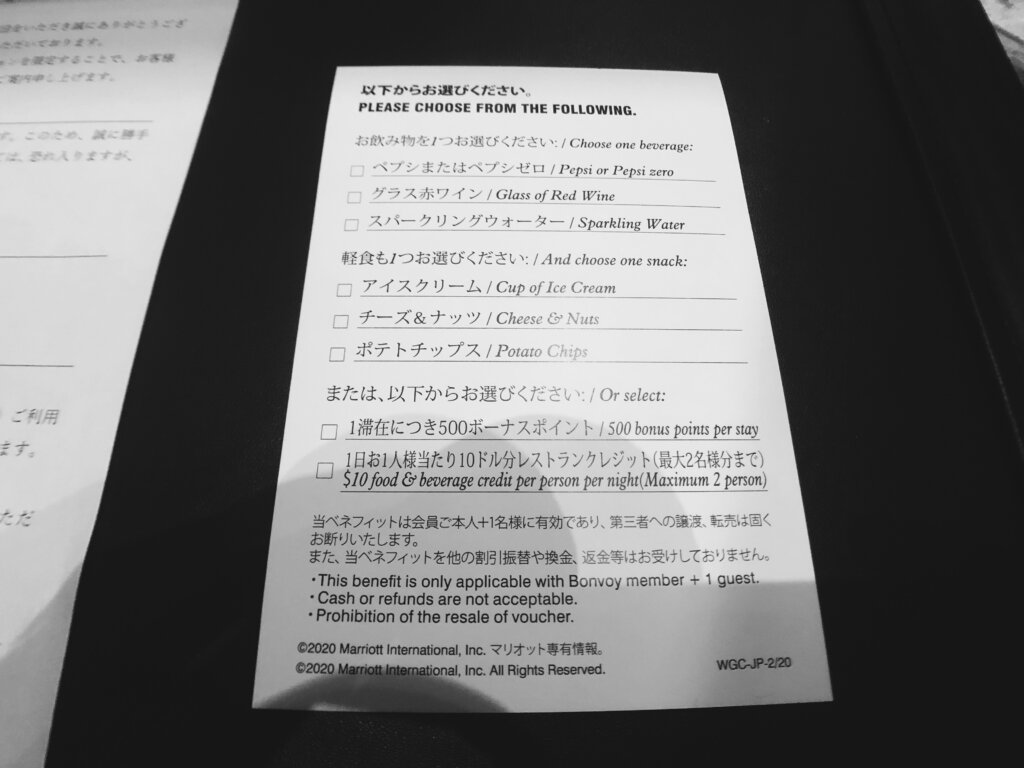 設をいただき誠にありがとうござ
ただいております。
ンを限定することで、お客様
ご案内申し上げます。
す。このため、誠に勝手
ては、恐れ入りますが、
ご利用
ます。
ただ
以下からお選びください。
PLEASE CHOOSE FROM THE FOLLOWING.
お飲み物を1つお選びください: / Choose one beverage:
□ ペプシまたはペプシゼロ / Pepsi or Pepsi zero
□ グラス赤ワイン / Glass of Red Wine
□ スパークリングウォーター / Sparkling Water
軽食も1つお選びください: / And choose one snack:
□ アイスクリーム / Cup of Ice Cream
□ チーズ&ナッツ / Cheese & Nuts
□ ポテトチップス / Potato Chips
または、以下からお選びください: / Or select:
□ 1滞在につき500ボーナスポイント / 500 bonus points per stay
□ 1日お1人様当たり10ドル分レストランクレジット(最大2名様分まで)
$10 food & beverage credit per person per night(Maximum 2 person)
当ベネフィットは会員ご本人+1名様に有効であり、第三者への譲渡、転売は固く
お断りいたします。
また、当ベネフィットを他の割引振替や換金、返金等はお受けしておりません。
・This benefit is only applicable with Bonvoy member + 1 guest.
・Cash or refunds are not acceptable.
・Prohibition of the resale of voucher.
©2020 Marriott International, Inc. マリオット専有情報。
©2020 Marriott International, Inc. All Rights Reserved.
WGC-JP-2/20